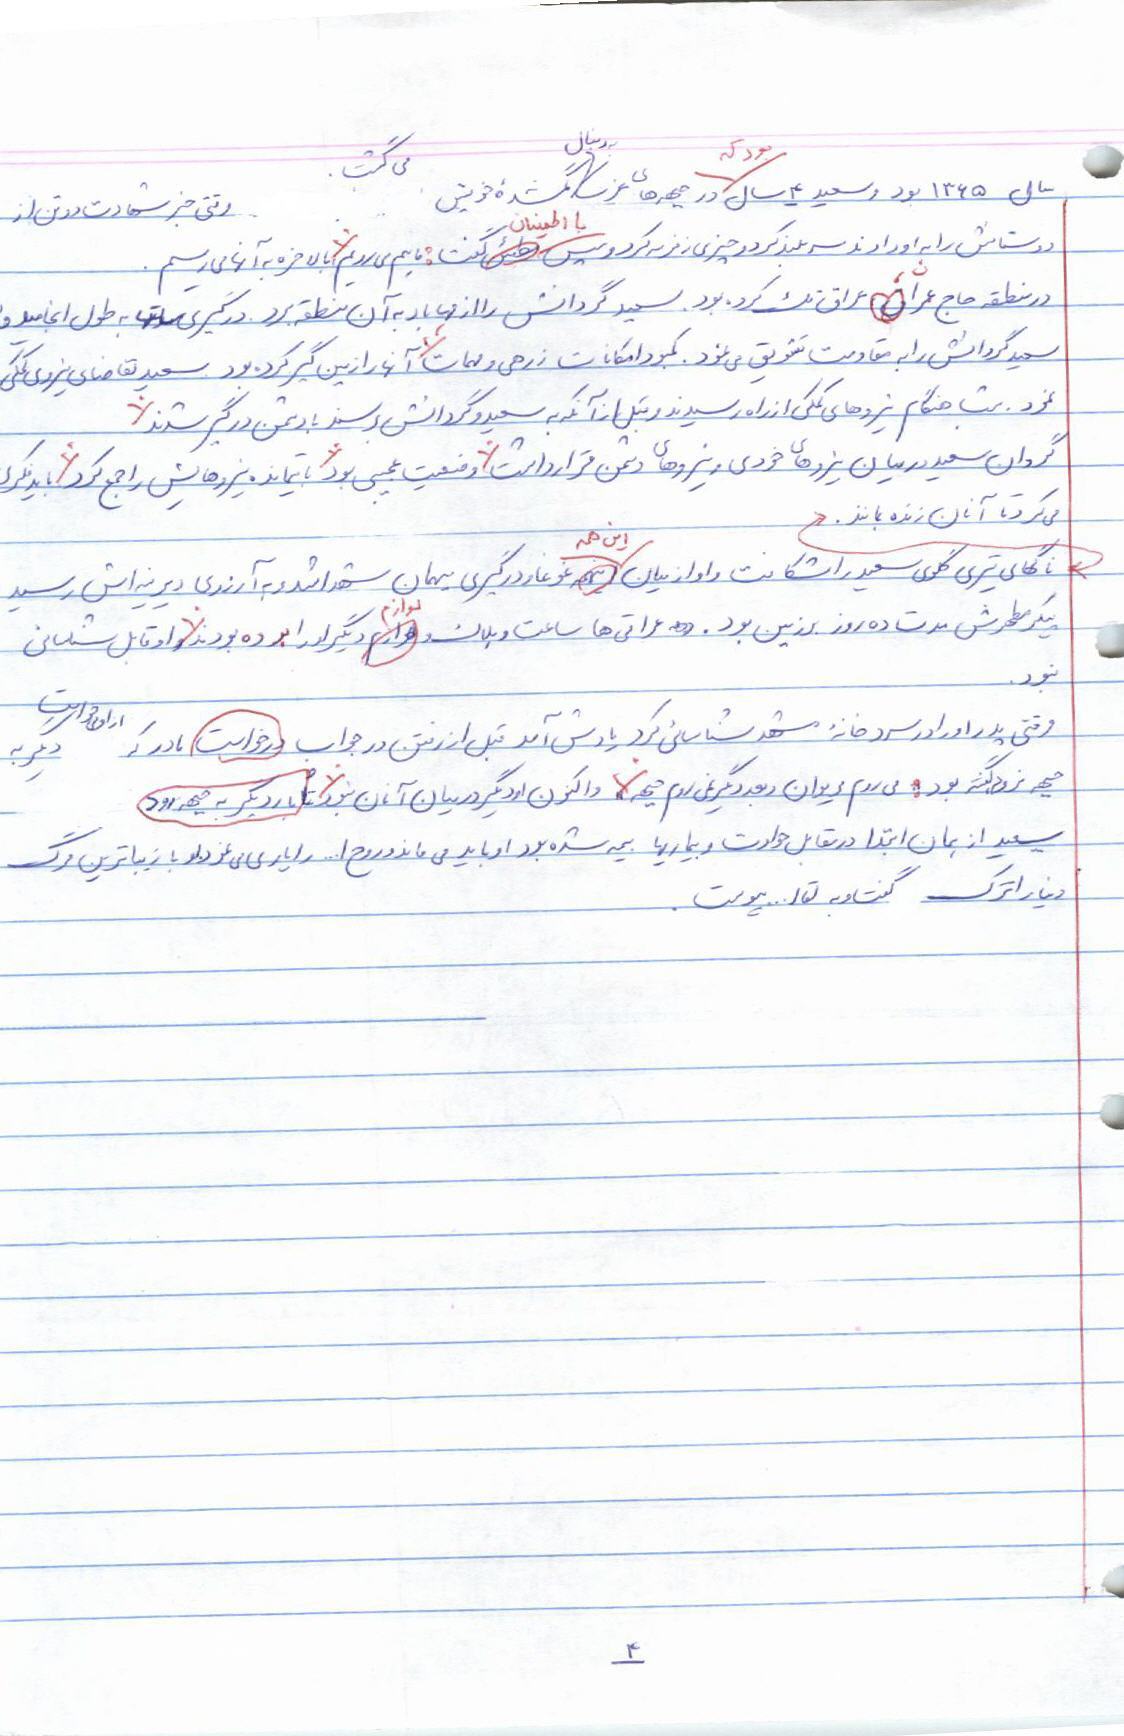 بود که به دنبال
سال ۱۳۶۵ بود و سعید ۴ سال در جبهه‌های غرب گمشدهٔ خویش می گشت. وقتی خبر شهادت دو تن از
با اطمینان
دوستانش را به او دادند سر بلند کرد و چیزی زمزمه کرد و سپس گفت: ما هم می رویم، بالاخره به آنها می رسیم.
در منطقه حاج عمران عراق تک کرده بود. سعید گردانش را از به آن منطقه برد. درگیری به طول انجامید و
سعید گردانش را به مقاومت تشویق می نمود. کمبود امکانات زرهی و مهمات آنها را زمین گیر کرده بود. سعید تقاضای نیروی کمکی
نمود. شب هنگام نیروهای کمکی از راه رسیدند و قبل از آنکه به سعید و گردانش برسند با دشمن درگیر شدند.
گردان سعید در میان نیروهای خودی و نیروهای دشمن قرار داشت. وضعیت عجیبی بود. باقیمانده نیروهایش را جمع کرد. باید فکری
می کرد تا آنان زنده بمانند.
این همه
ناگهان تیری گلوی سعید را شکافت و او از میان غوغا و درگیری میهمان شهدا شد و به آرزوی دیرینه اش رسید
لوازم
پیکر مطهرش مدت ده روز بر زمین بود. عراقی ها ساعت و پلاک و دیگر او را برده بودند. و او قابل شناسائی
نبود.
وقتی پدر او را در سردخانهٔ شناسائی کرد یادش آمد قبل از رفتن در جواب درخواست مادر که از او می خواست دیگر به
جبهه نرود گفته بود: می روم مریوان و بعد دیگر نمی روم جبهه. و اکنون او دیگر در میان آنان نبود. تا بار دیگر به جبهه رود
سعید از همان ابتدا در مقابل حوادث و بیماریها بیمه شده بود او باید می ماند و روح ا... را یاری می نمود و با زیباترین مرگ
دنیا را ترک گفت و به لقاء ... پیوست.
۴